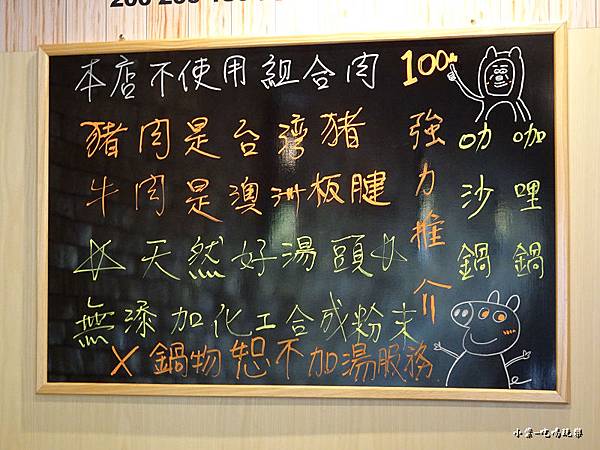 本店不使用組合肉
豬肉是台灣豬
牛肉是澳洲板腱
天然好湯頭
無添加化工合成粉末
X 鍋物恕不加湯服務
100%
強力推介
咖哩鍋
叻沙鍋
小紫-吃喝玩樂